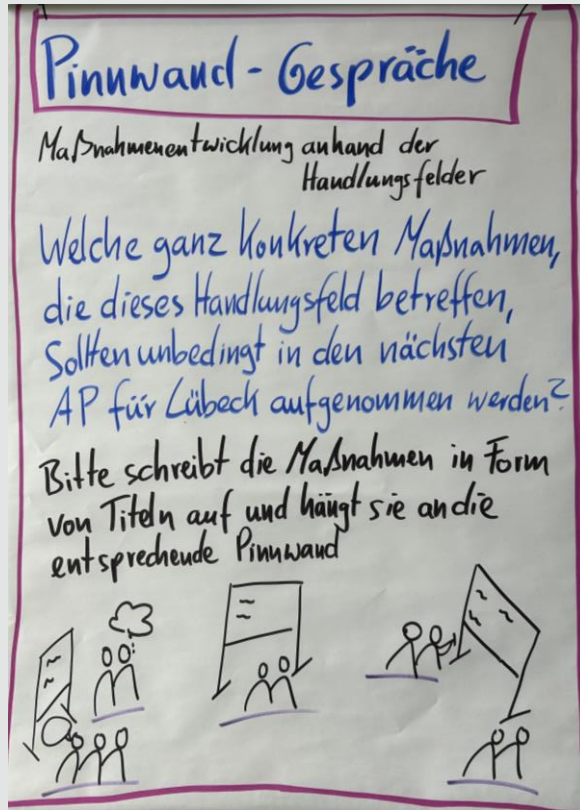 Pinnwand - Gespräche
Maßnahmenentwicklung anhand der
Handlungsfelder
Welche ganz konkreten Maßnahmen,
die dieses Handlungsfeld betreffen,
Sollten unbedingt in den nächsten
AP für Lübeck aufgenommen werden?
Bitte schreibt die Maßnahmen in Form
von Titeln auf und hängt sie an die
entsprechende Pinnwand